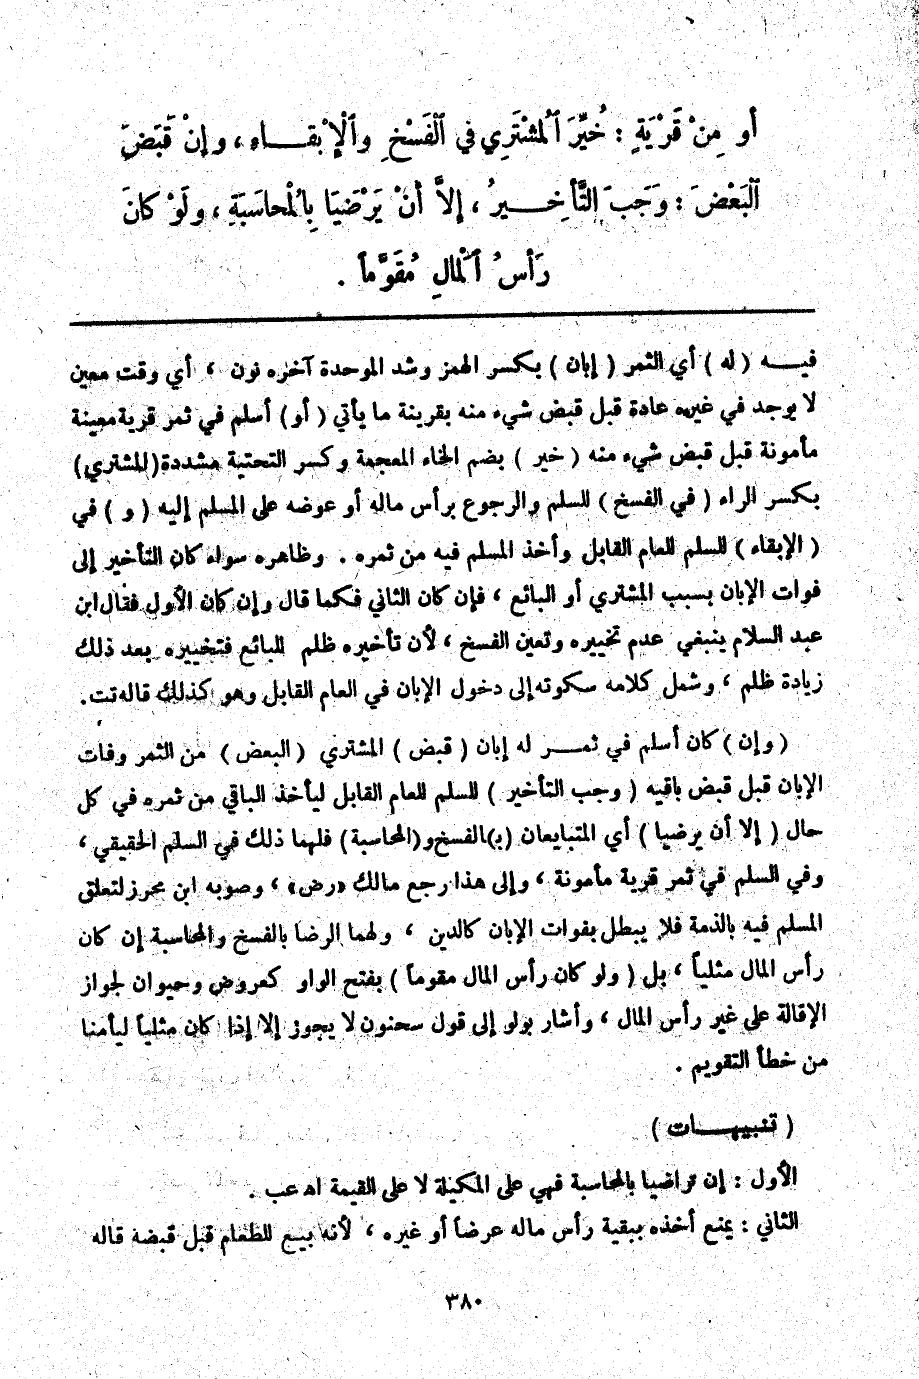 أو مِنْ قَرْيَةٍ : خُيِّرَ ٱلْمُشْتَرِي فِي ٱلْفَسْخِ وٱلْإِبْقـــاءِ ، وإنْ قَبَضَ
ٱلْبَعْضَ : وَجَبَ التَّأخِـــيرُ ، إلاَّ أنْ يَرْضَيَا بِالْمُحاسَبَةِ ، ولَوْ كانَ
رَأسُ ٱلْمالِ مُقَوَّماً .
فيـــه ( له ) أي الثمر ( إبان ) بكسر الهمز وشد الموحدة آخره نون ، أي وقت معين
لا يوجد في غيره عادة قبل قبض شيء منه بقرينة ما يأتي ( أو ) أسلم في ثمر قرية معينة
مأمونة قبل قبض شيء منه ( خير ) بضم الخاء المعجمة وكسر التحتية مشددة (المشتري)
بكسر الراء ( في الفسخ ) للسلم والرجوع برأس ماله أو عوضه على المسلم إليه ( و ) في
( الإبقاء ) للسلم للعام القابل وأخذ المسلم فيه من ثمره . وظاهره سواء كان التأخير إلى
فوات الإبان بسبب المشتري أو البائع ، فإن كان الثاني فكما قال وإن كان الأول فقال ابن
عبد السلام ينبغي عدم تخييره وتعين الفسخ ، لأن تأخيره ظلم للبائع فتخييره بعد ذلك
زيادة ظلم ، وشمل كلامه سكوته إلى دخول الإبان في العام القابل وهو كذلك قاله تت .
( وإن ) كان أسلم في ثمـــر له إبان ( قبض ) المشتري ( البعض ) من الثمر وفات
الإبان قبل قبض باقيه ( وجب التأخير ) للسلم للعام القابل ليأخذ الباقي من ثمره في كل
حال ( إلا أن يرضيا ) أي المتبايعان (بـ)الفسخ و(المحاسبة) فلهما ذلك في السلم الحقيقي ،
وفي السلم في ثمر قرية مأمونة ، وإلى هذا رجع مالك «رض» ، وصوبه ابن محرز لتعلق
المسلم فيه بالذمة فلا يبطل بفوات الإبان كالدين ، ولهما الرضا بالفسخ والمحاسبة إن كان
رأس المال مثلياً ، بل ( ولو كان رأس المال مقوماً ) بفتح الواو كعروض وحيوان لجواز
الإقالة على غير رأس المال ، وأشار بولو إلى قول سحنون لا يجوز إلا إذا كان مثلياً ليأمنا
من خطأ التقويم .
( تنبيهـــات )
الأول : إن تراضيا بالمحاسبة فهي على المكيلة لا على القيمة اهـ عب .
الثاني : يمنع أخذه ببقية رأس ماله عرضاً أو غيره ، لأنه بيع للطعام قبل قبضة قاله
٣٨٠